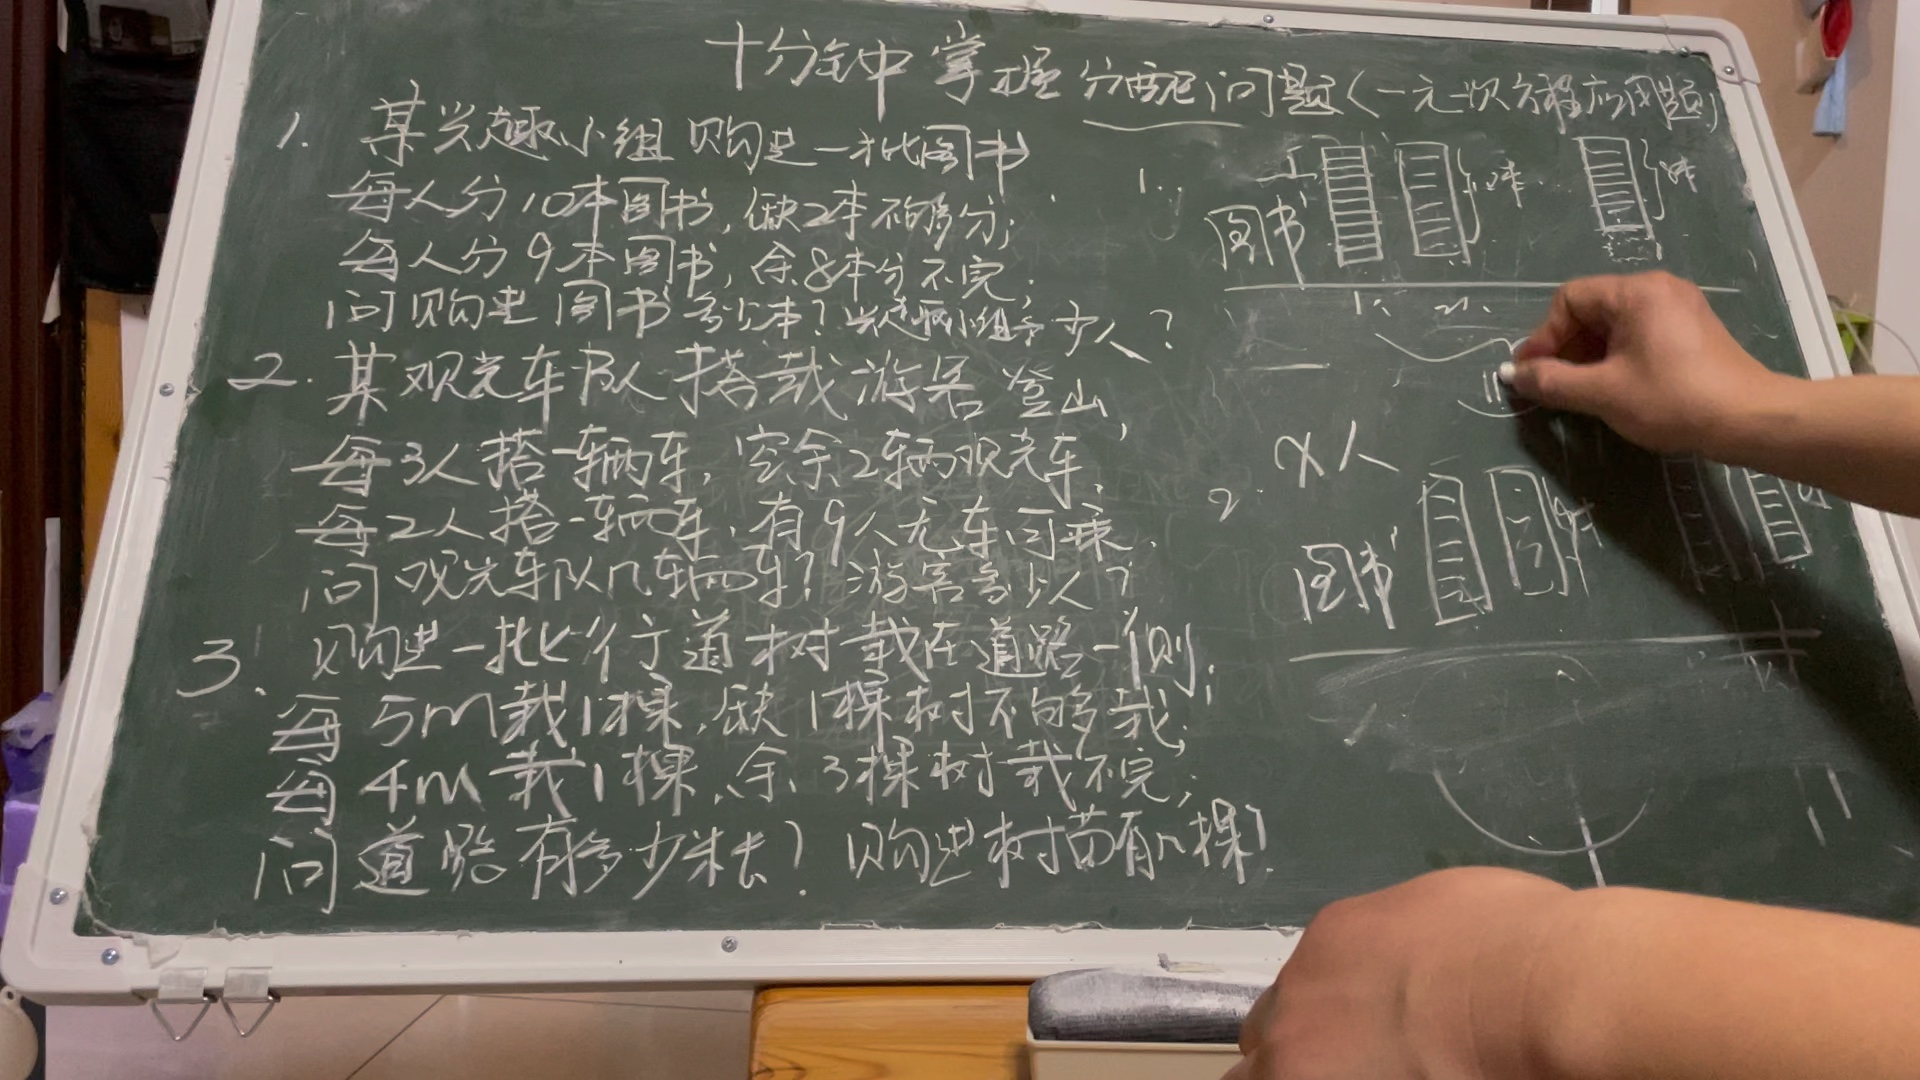 十分钟中掌握分配问题(一元一次方程应用题)
1. 某兴趣小组购进一批图书
每人分10本图书,缺2本不够分;
每人分9本图书,余8本分不完;
问购进图书多少本?兴趣小组多少人?
2. 某观光车队搭载游客登山,
每3人搭一辆车,空余2辆观光车,
每2人搭一辆车,有9人无车可乘.
问观光车队几辆车?游客多少人?
3. 购进一批行道树栽在道路一侧;
每5m栽1棵,缺1棵树不够栽;
每4m栽1棵,余3棵树栽不完;
问道路有多少米长?购进树苗有几棵?
1.
图书
x人
2.
图书